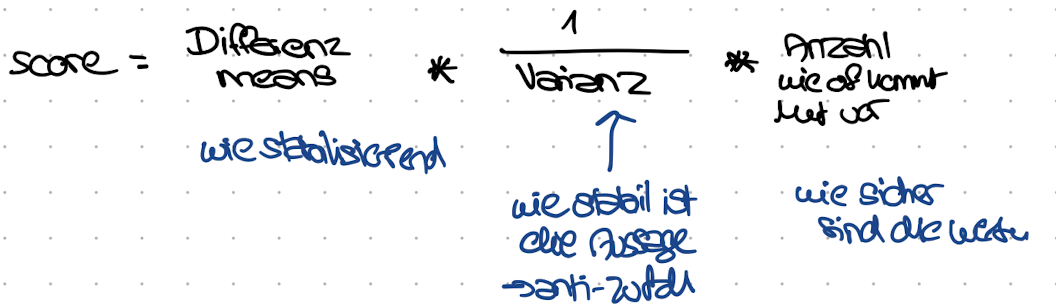 score = Differenz means * 1 / Varianz * Anzahl
wie of kommt
Mut vor
wie stabilisierend
wie stabil ist
die Aussage
→ anti-Zufall
wie sicher
sind die Werte